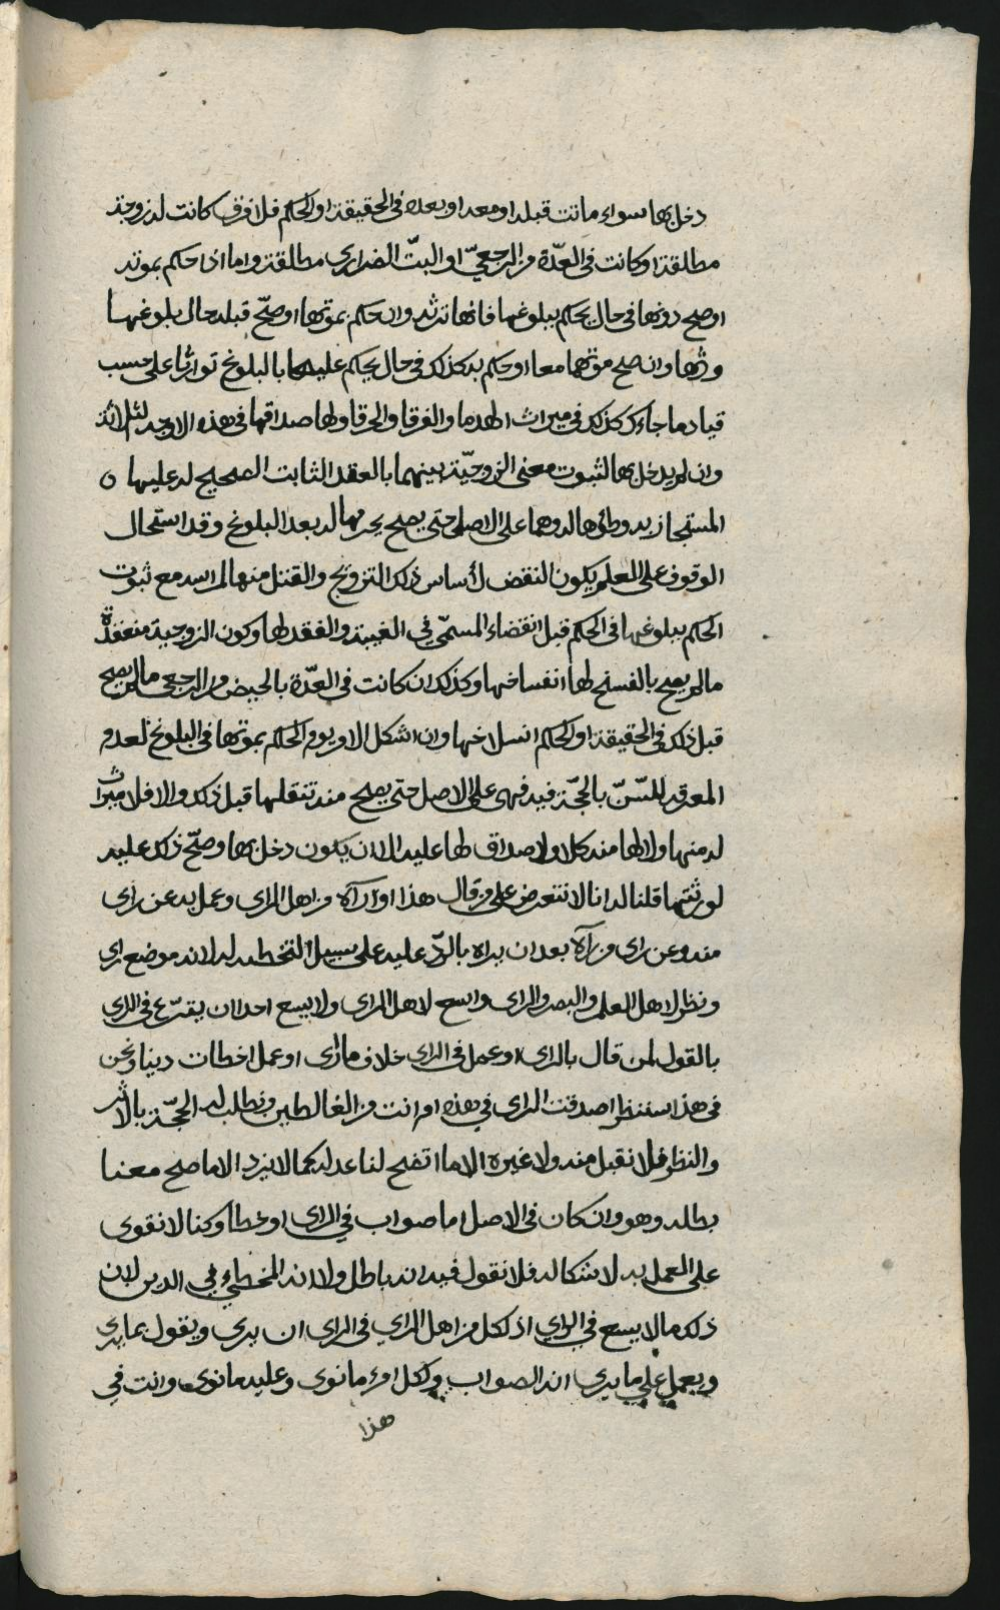 دخل بها سواء ماتت قبله او معه او بعده في الحقيقة او الحكم فلا فرق كانت له زوجة
مطلقة او كانت في العدّة من الرجعيّ او البتّ الضراري مطلقة واما اذا حكم بموته
او صح دونها في حال يحكم ببلوغها فانها ترثه وان حكم بموتها او صحّ قبله حال بلوغها
ورثها وان صح موتهما معا او حكم به كذلك في حال يحكم عليهما بالبلوغ توارثا على حسب
قياد ما جاء كذلك في ميراث الهدما والغرقا والحرقا ولها صداقها في هذه الاوجه الثلاثة
وان لم يدخل بها لثبوت معنى الزوجيّة بينهما بالعقد الثابت الصحيح له عليها ه
المستجاز به وطؤها له وهما على الاصل حتى يصح تحريمها له بعد البلوغ وقد استحال
الوقوف على العلم بكون النقض لأساس ذلك التزويج والقتل منها لمراسه مع ثبوت
الحكم ببلوغها في الحكم قبل انقضاء المسمّى في الغيبة والفقد لها وكون الزوجية منعقدة
ما لم يصح بالفسخ لها انفساخها وكذلك ان كانت في العدّة بالحيض من الرجعي ما لم يصح
قبل ذلك في الحقيقة او الحكم انسلاخها وان اشكل الامر يوم الحكم بموتها في البلوغ لعدم
المعرفة للسّنّ بالحجّة فيه فهي على الاصل حتى يصح منه تنقلها قبل ذلك والا فلا ميراث
له منها ولا لها منه كلا ولا صداق لها عليه الا ان يكون دخل بها وصحّ ذلك عليه
لورثتها قلنا له انا لا نتعرض على من قال هذا او رآه من اهل الراى وعمل به عن راى
منه وعن راى من رآه بعد ان يراه بالردّ عليه على سبيل التخطيه له لانه موضع راى
ونظر لاهل العلم والبصر والراى واسع لاهل الراى ولا يسع احدا ان يقترع في الراى
بالقول لمن قال بالراى او عمل في الراى خلاف ما راى او عمل اخطات دينا ونحن
في هذا سننظر اصدقت الراى في هذه ام انت من الغالطين ونطلب له الحجّة بالاثر
والنظر فلا نقبل منه ولا غيره الا ما اتضح لنا عدله كما لا نرد الا ما صح معنا
بطله وهو وان كان في الاصل اما صواب في الراى او خطا وكنا لا نقوى
على العمل به لاشكاله فلا نقول فيه انه باطل ولا انه المخطي في الدين لان
ذلك ما لا يسع في الراي اذ لكل من اهل الراي في الراى ان يرى ويقول بما يرى
ويعمل على ما يرى انه الصواب ولكل امرء ما نوى وعليه ما نوى وانت في
هذا